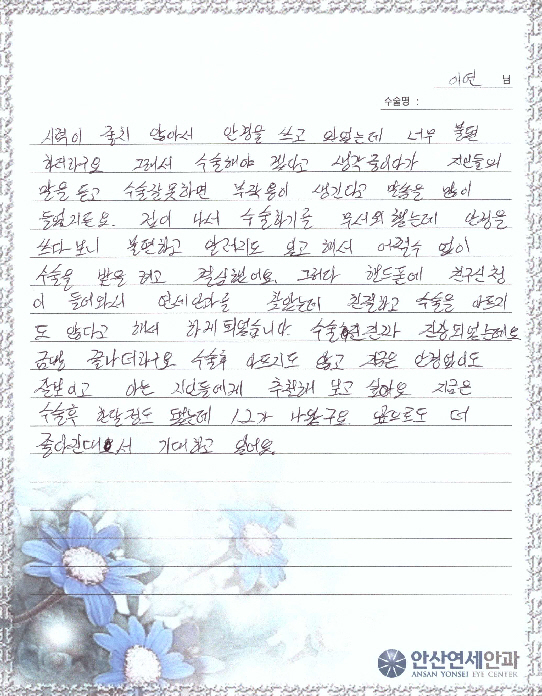 이연 님
수술명 :
시력이 좋치 않아서 안경을 쓰고 왔었는데 너무 불편
하더라구요 그래서 수술해야 겠다고 생각 중이다가 지인들의
말을 듣고 수술잘못하면 부작용이 생긴다고 말씀을 많이
들었지든요. 겁이 나서 수술하기를 무서워 했는데 안경을
쓰다보니 불편하고 알려지도 있고 해서 어쩔수 없이
수술을 받을려고 결심했어요. 그러다 핸드폰에 친구신청
이 들어와서 연세안과을 찾았는데 친절하고 수술을 아프지
도 않다고 해서 하게 되었습니다 수술 긴장되었는데요
금방 끝나더라구요 수술후 아프지도 않고 지금은 안경없이도
잘보이고 아는 지인들에게 추천해 보고 싶어요 지금은
수술후 한달정도 됐는데 1.2가 나왔구요 앞으로도 더
좋아진대서 기대하고 있어요.
안산연세안과
ANSAN YONSEI EYE CENTER